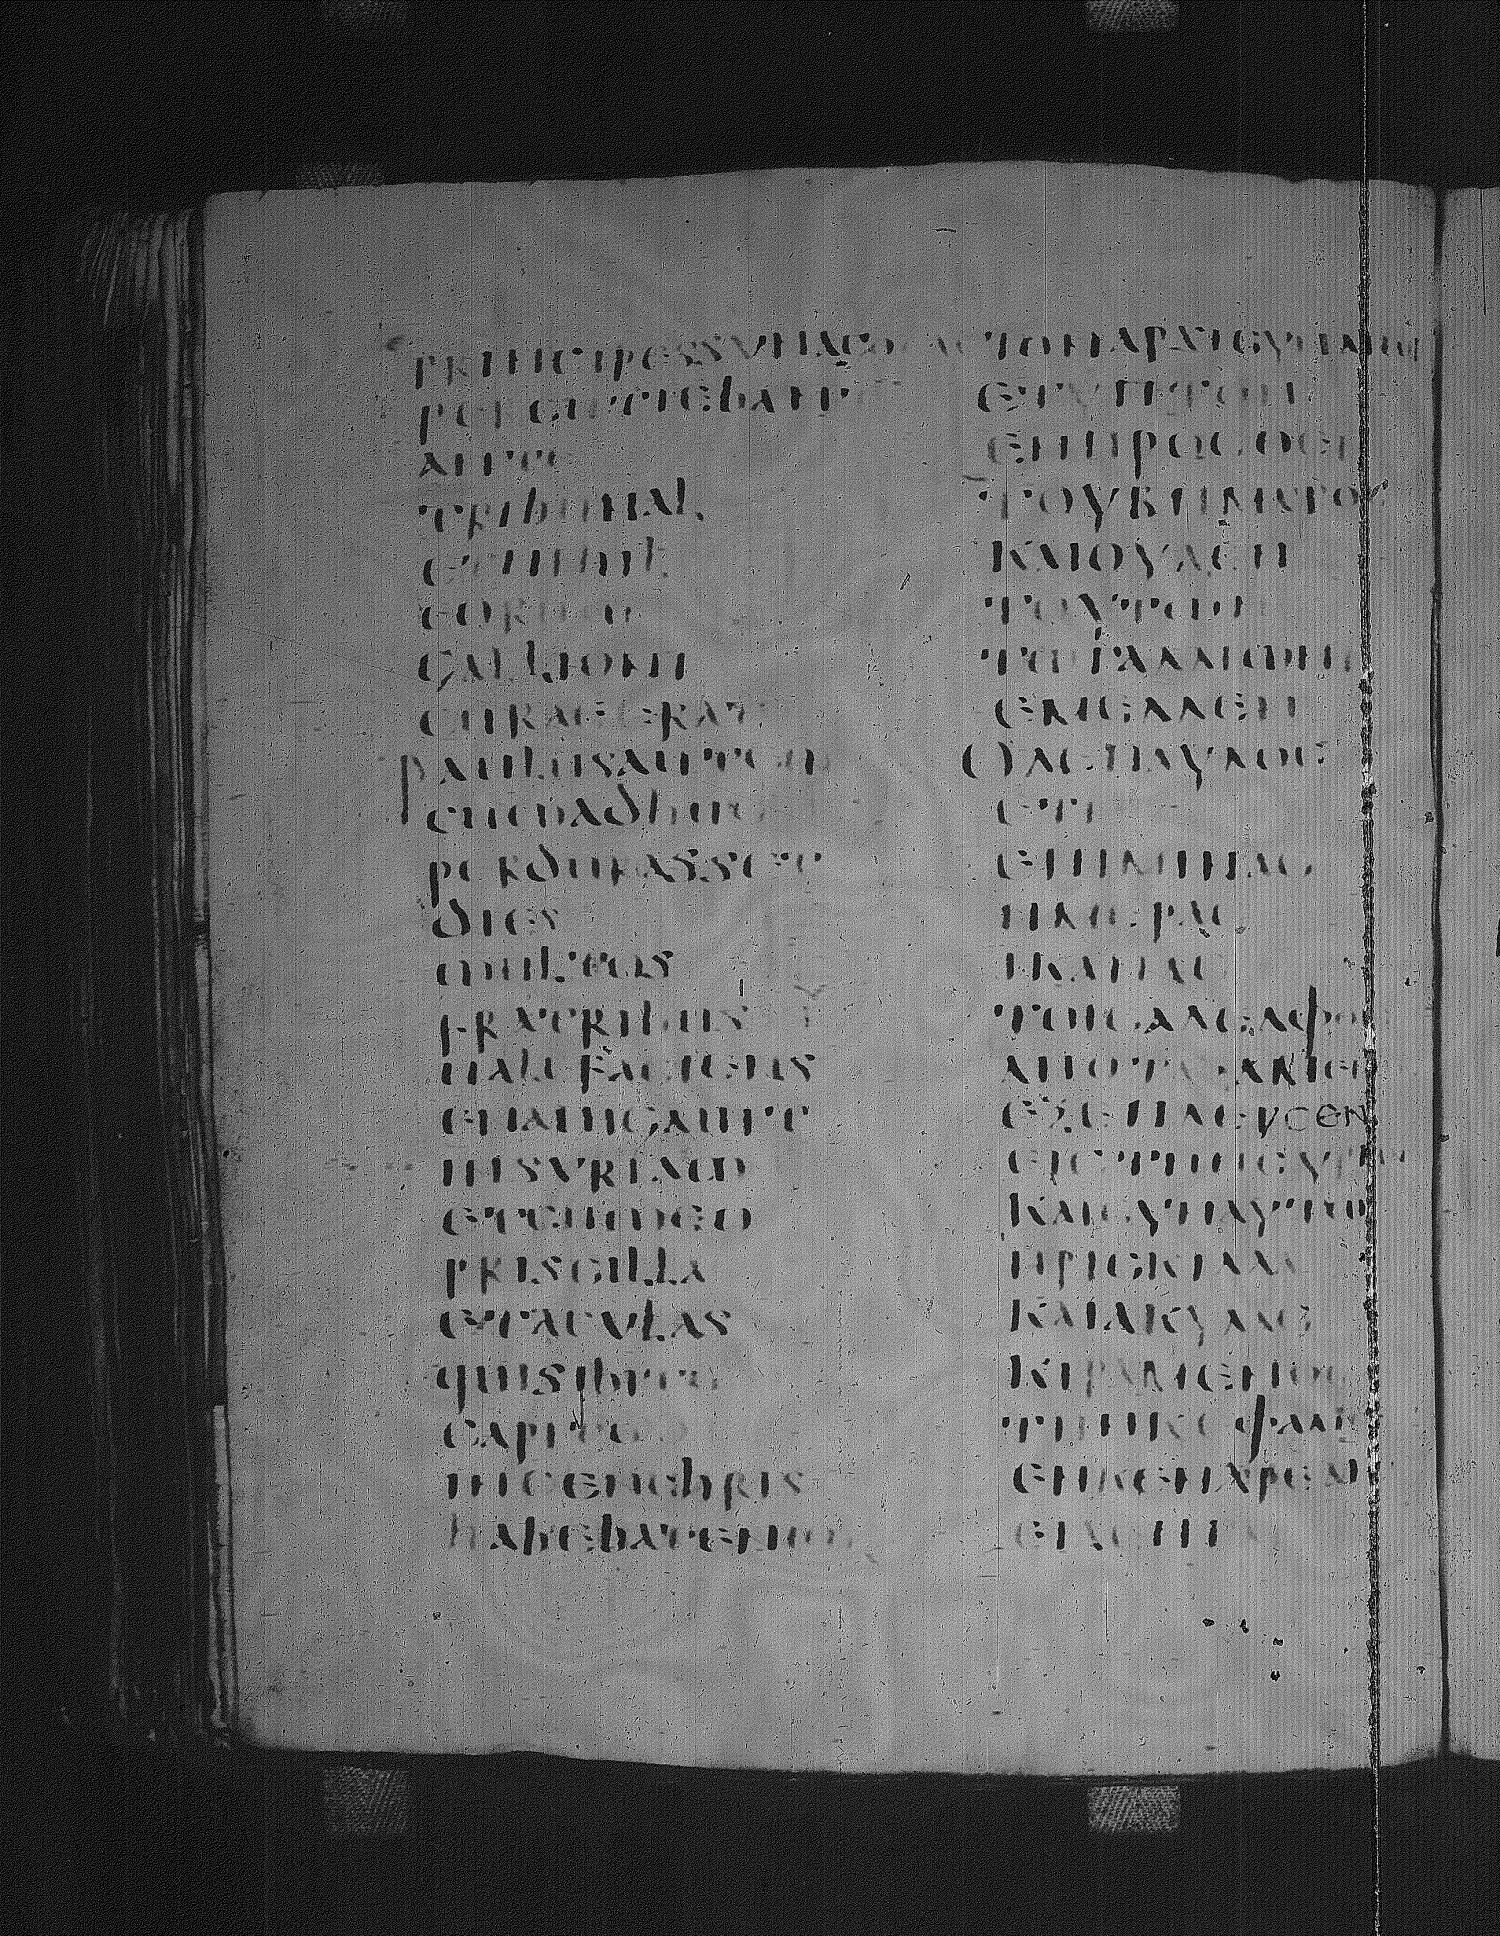 PRINCIPESSYNAGOG
PERCUTIEBANT
ANTE
TRIBUNAL
ETNIHIL
EORUM
GALLIONI
CURAEERAT
PAULUSAUTEM
CUMADHUC
PERDURASSET
DIES
MULTOS
FRATRIBUS
UALEFACIENS
ENAUIGAUIT
INSYRIAM
ETCUMEO
PRISCILLA
ETACYLAS
INCENCHRIS
HABEBATENIM
ΤΟΝΑΡΧΙϹΥΝΑΓΩ
ΕΤΥΠΤΟΝ
ΕΝΠΡΟϹΘΕΝ
ΤΟΥΒΗΜΑΤΟϹ
ΚΑΙΟΥΔΕΝ
ΤΟΥΤΩΝ
ΤΩΓΑΛΛΙΩΝΙ
ΕΜΕΛΛΕΝ
ΟΔΕΠΑΥΛΟϹ
ΕΤΙ
ΕΠΙΜΙΝΑϹ
ΗΜΕΡΑϹ
ΙΚΑΝΑϹ
ΤΟΙϹΑΔΕΛΦΟΙϹ
ΑΠΟΤΑΞΑΜΕΝΟϹ
ΕΞΕΠΛΕΥϹΕΝ
ΕΙϹΤΗΝϹΥΡΙΑΝ
ΚΑΙϹΥΝΑΥΤΩ
ΠΡΙϹΚΙΛΛΑ
ΚΑΙΑΚΥΛΑϹ
ΚΙΡΑΜΕΝΟϹ
ΤΗΝΚΕΦΑΛΗΝ
ΕΝΚΕΝΧΡΕΑΙϹ
ΕΙΧΕΝ